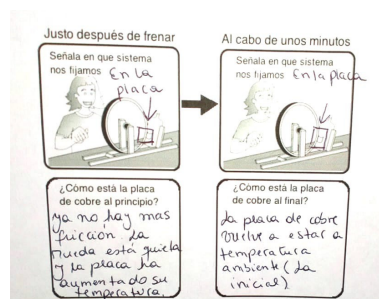 Justo después de frenar
Señala en que sistema
nos fijamos En la
placa
¿Cómo está la placa
de cobre al principio?
ya no hay mas
fricción. la
rueda está quieta
y la placa ha
aumentado su
temperatura.
Al cabo de unos minutos
Señala en que sistema
nos fijamos En la placa
¿Cómo está la placa
de cobre al final?
La placa de cobre
vuelve a estar a
temperatura
ambiente (la
inicial)